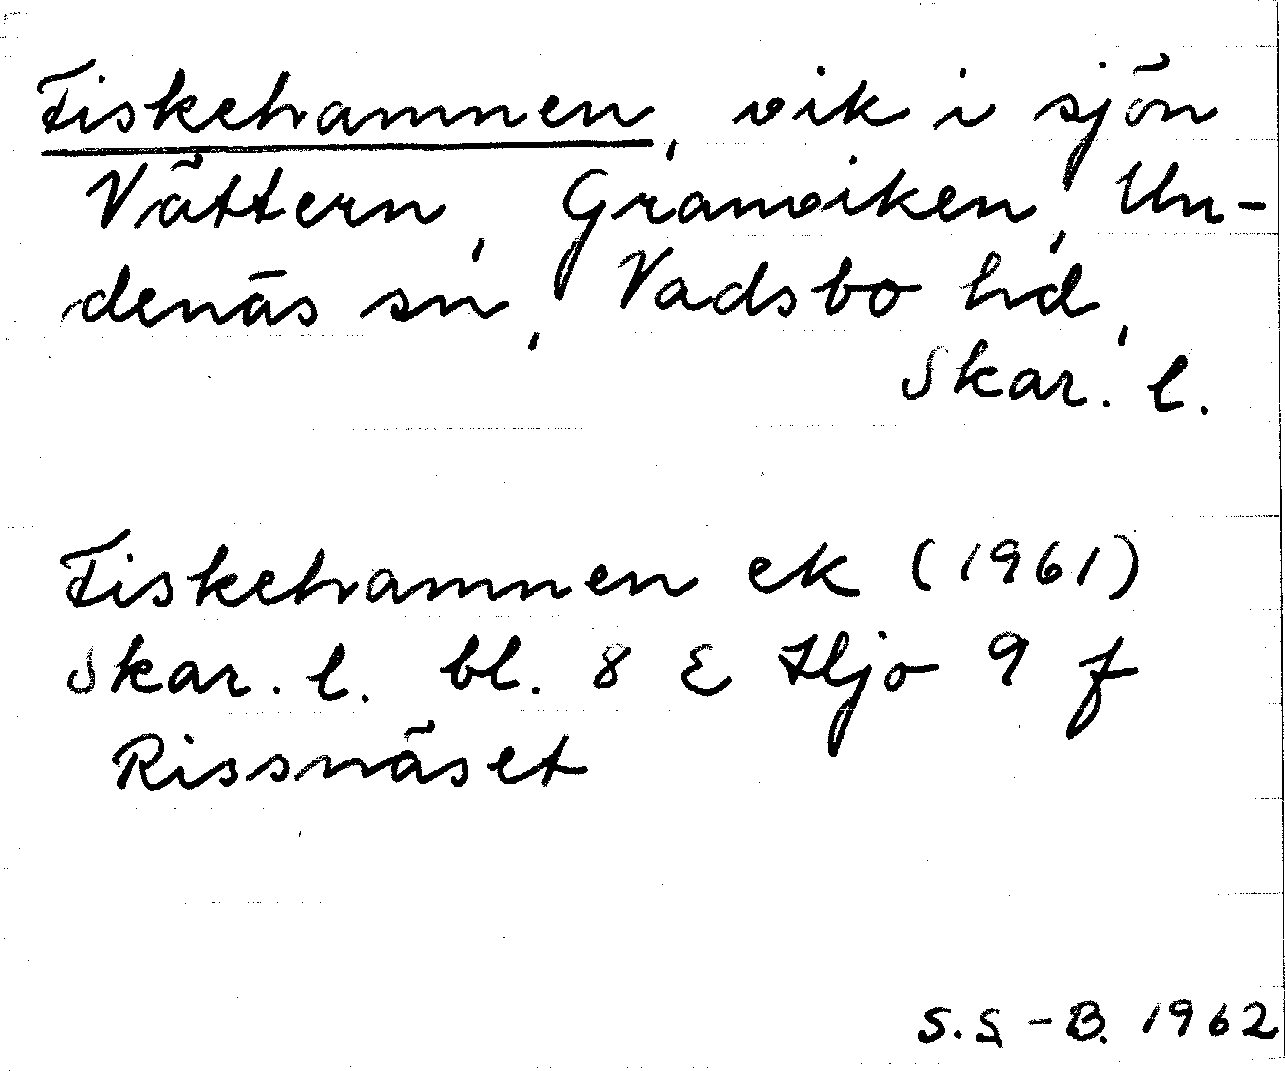 Fiskehamnen, vik i sjön
Vättern, Granviken, Un-
denäs sn, Vadsbo hd,
Skar. l.
Fiskehamnen ek (1961)
Skar. l. bl. 8 E Hjo 9 f
Rissnäset
S.S-B. 1962